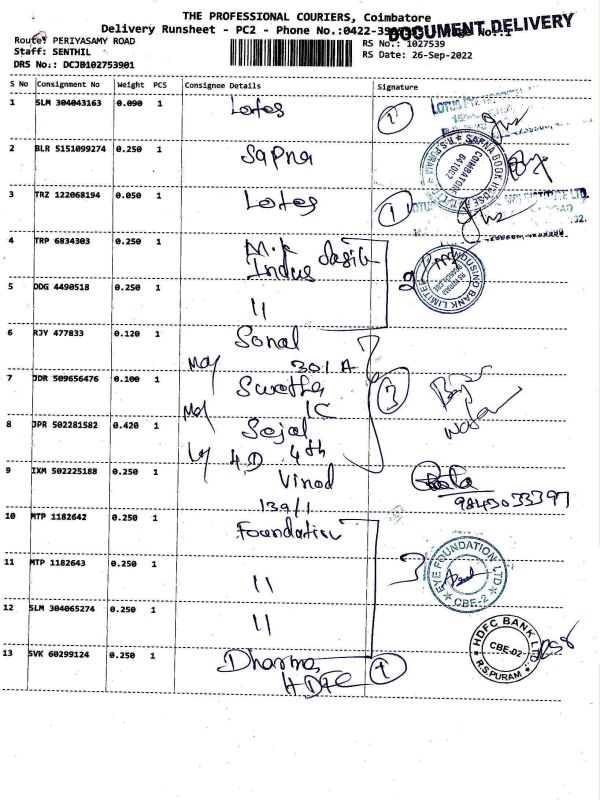 THE PROFESSIONAL COURIERS, Coimbatore
DOCUMENT DELIVERY
Delivery Runsheet - PC2 - Phone No.:0422-35
Route: PERIYASAMY ROAD
RS No.: 1027539
Staff: SENTHIL
RS Date: 26-Sep-2022
DRS No.: DCJB102753901
S No Consignment No Weight PCS Consignee Details Signature
1 SLM 304043163 0.090 1 Lotos 1
2 BLR 5151099274 0.250 1 Sapna
SAPNA BOOK HOUSE
COIMBATORE
641002
R.S.PURAM
3 TRZ 122068194 0.050 1 Lotos 1
4 TRP 6834303 0.250 1 M.K
Indus 2
INDUSIND BANK LIMITED
5 DDG 4490518 0.250 1 11
6 RJY 477833 0.120 1 Sonal
301 A
7 JDR 509656476 0.100 1 Swatha 3
1C
8 JPR 502281582 0.420 1 Sojal
4D 4th
9 IXM 502225188 0.250 1 Vinod
139/1
9843033397
10 MTP 1182642 0.250 1 Foundation
11 MTP 1182643 0.250 1 11 3
EYE FOUNDATION LTD
CBE-2
12 SLM 304065274 0.250 1 11
13 SVK 60299124 0.250 1 Dharma 1
HDFC
HDFC BANK LTD.
CBE-02
R.S.PURAM